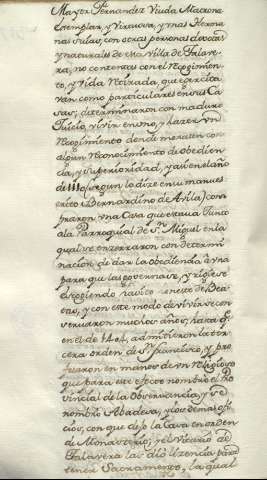 Mayor Fernandez Viuda Matrona
exemplar, y Virtuosa, y unas Herma
nas suias, con otras personas devotas
y naturales de esta Villa de Talave
ra, no contentas con el recogimien
to, y vida retirada, que exercita
van como particulares en sus Ca
sas; determinaron con maduro
Juicio vivir en uno, y hazer un
recogimiento donde mereciesen con
algun reconocimiento de obedien
cia, y superioridad, y assi en el año
de (segun lo dize en su manues
crito Bernardino de Avila) com
praron una Casa que estaua junto
a la Parroquial de Sn. Miguel en la
qual se enzerraron con determi
nacion de dar la obediencia a una
para que las governase, y eligiese
escogiendo havito onesto de Bea
tas, y con este modo de vivir se con
servaron muchos años; hasta q.
en el de 1404, admitieron la ter
cera orden de Sn. Francisco, y pro
fesaron en manos de un religioso
que para este efecto nombró el Pro
vincial de la Observancia, y se
nombró Abadesa, y los demas ofi
cios, con que dejo la Casa en orden
de Monasterio, y el Vicario de
Talavera las dio lizencia para
tener Sacramento, la qual